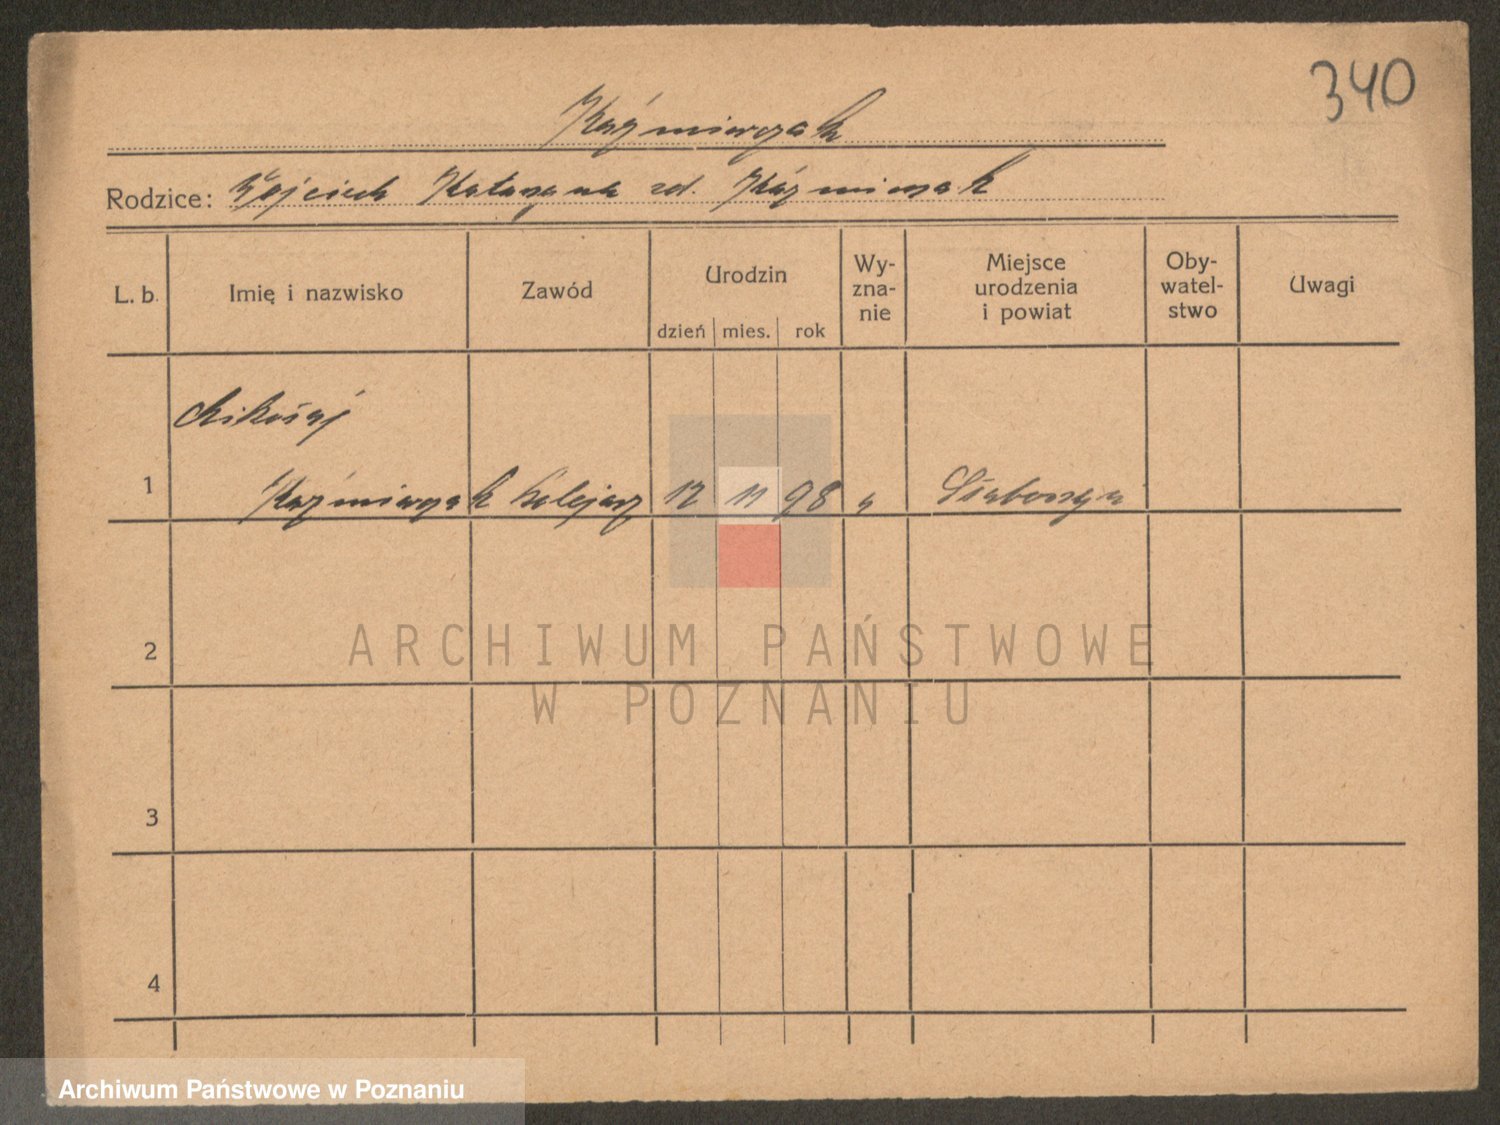 340
Kaźmierczak
Rodzice: Wojciech Katarzyna zd. Kaźmierczak
L. b. Imię i nazwisko Zawód Urodzin dzień mies. rok Wy-zna-nie Miejsce urodzenia i powiat Oby-watel-stwo Uwagi
Mikołaj
1 Kaźmierczak kolejarz 12 11 98
2
ARCHIWUM PAŃSTWOWE
W POZNANIU
3
4
Archiwum Państwowe w Poznaniu